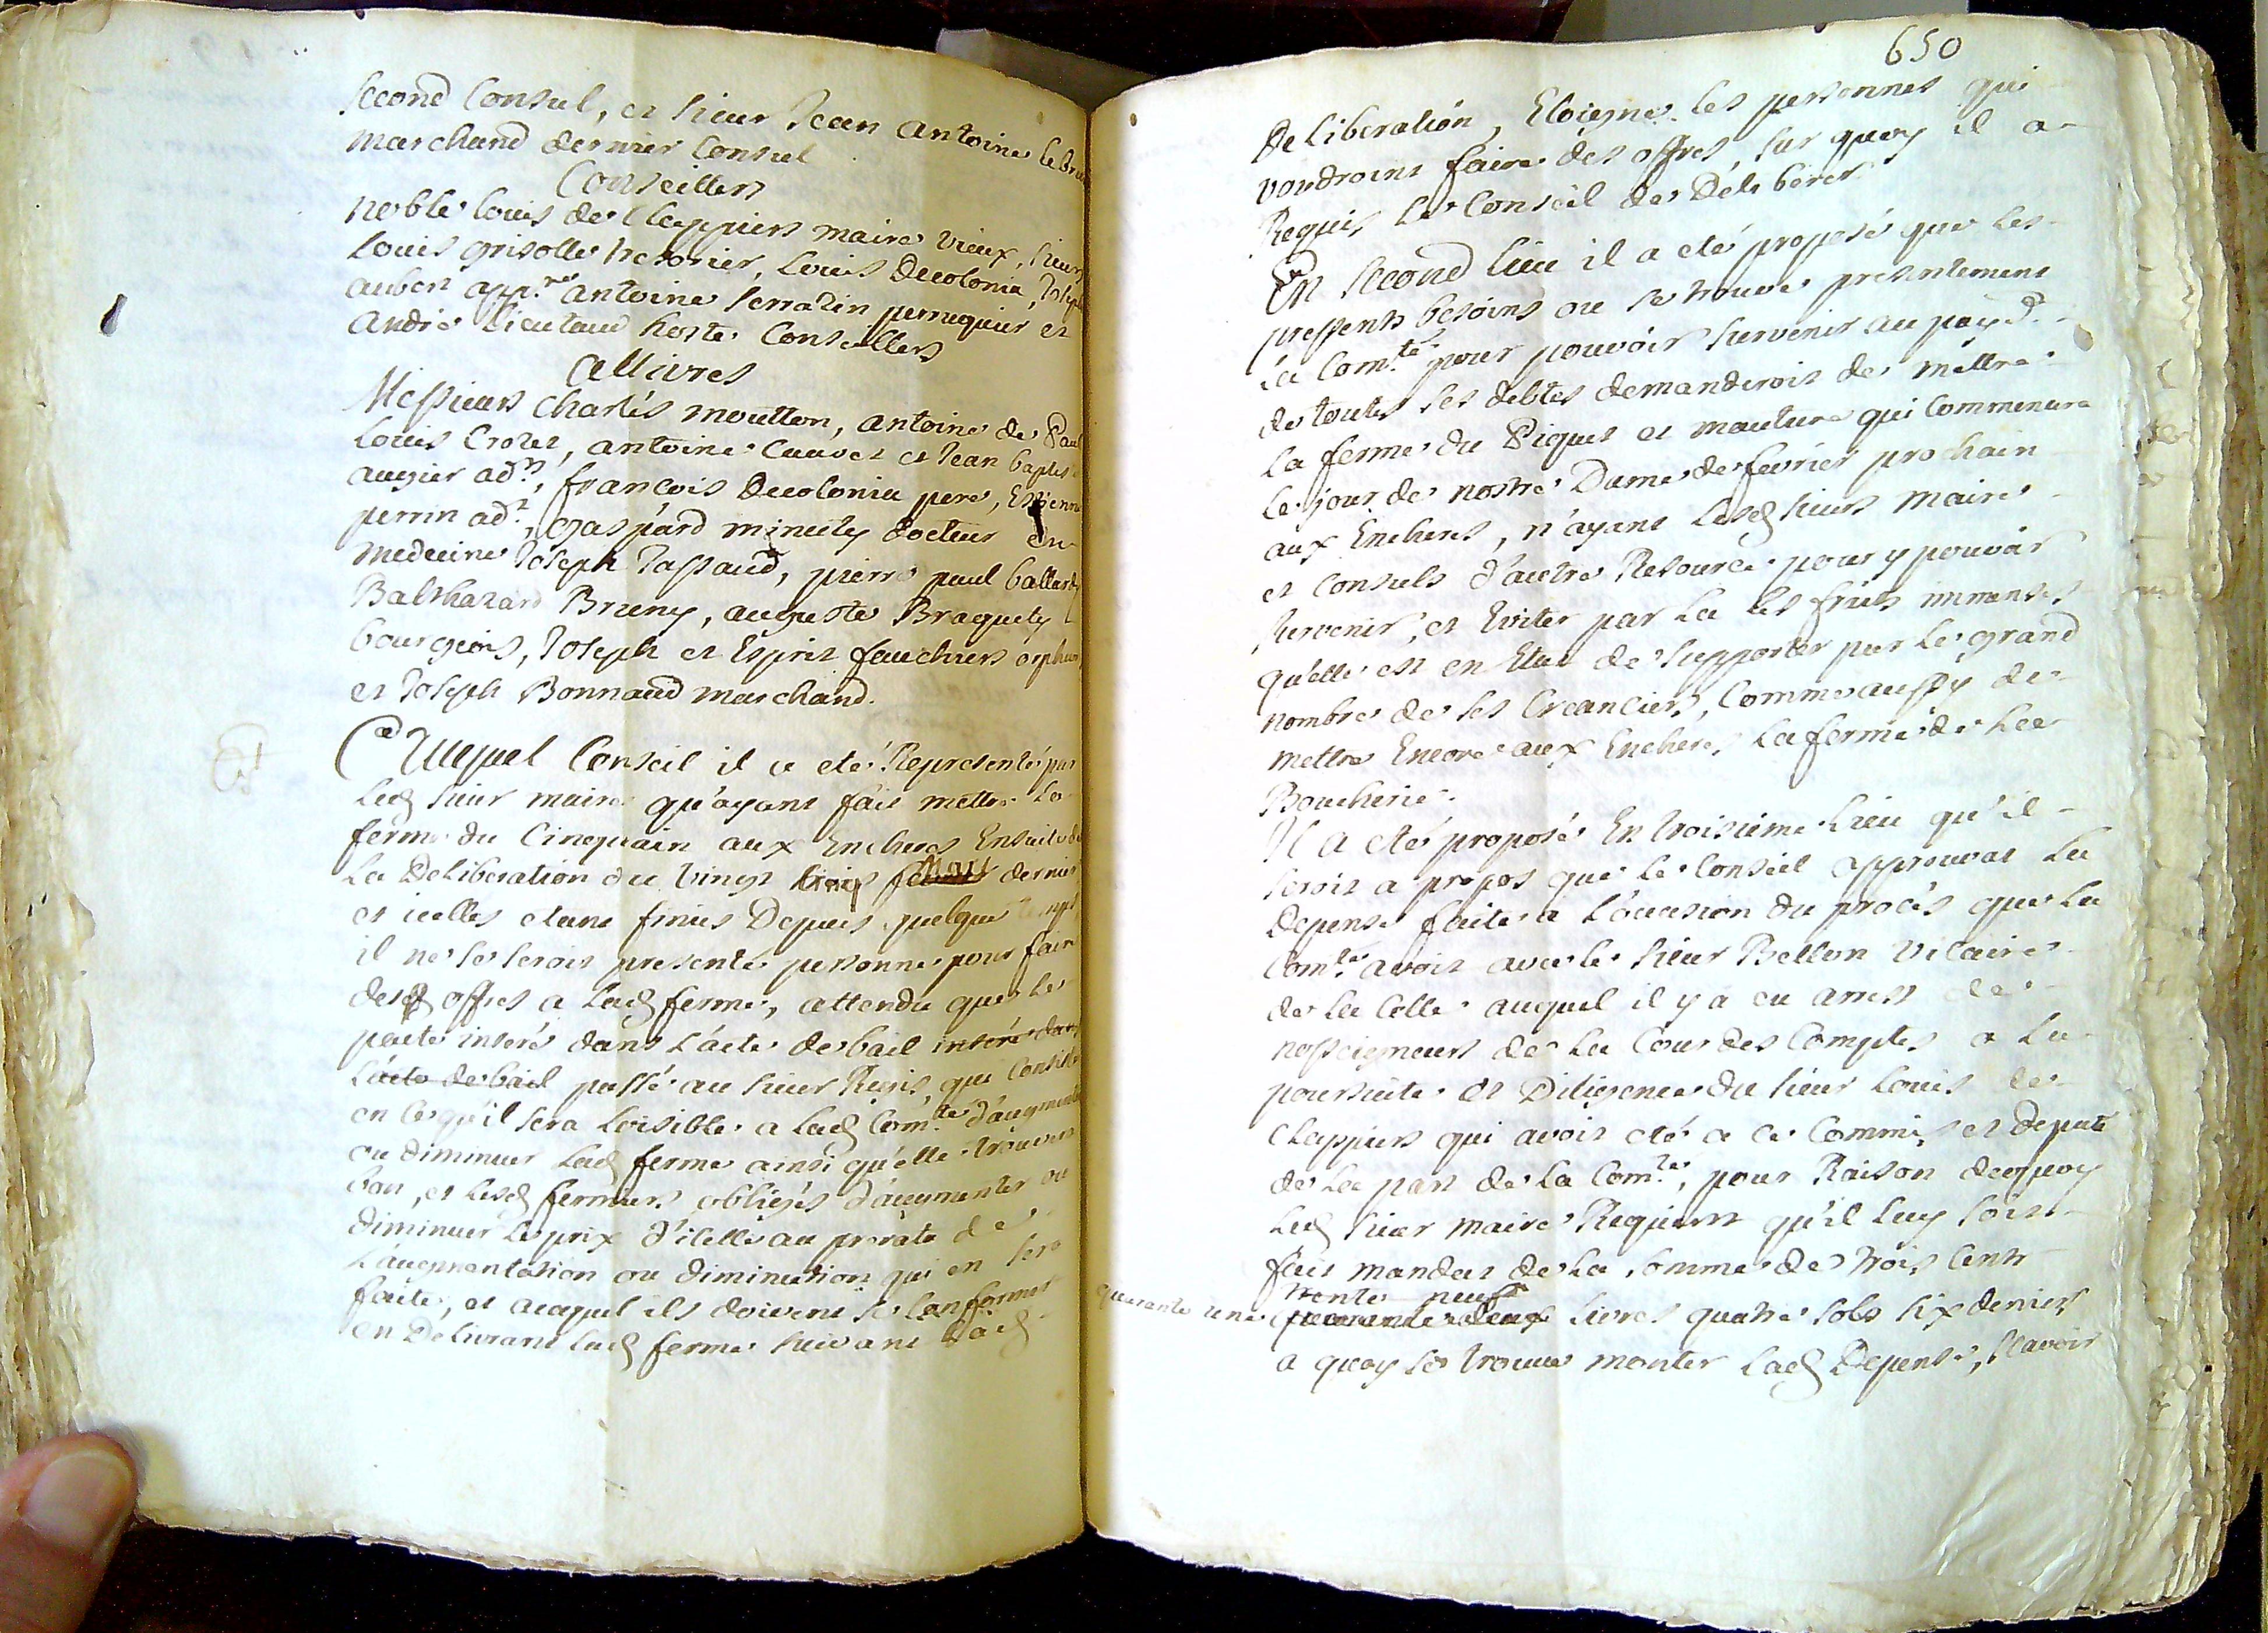 second Consul, et sieur Jean antoine
marchand dernier Consul
Conseillers
noble louis de Clappiers maire vieux, sieurs
Louis grisolle tresorier, Louis Decolonia, Joseph
aubert antoine serratin perruquier et
andré Lieutaud hoste Conseillers
allivrés
Messieurs charles moutton, antoine de Paul
Louis Crozet, antoine Cauvet et Jean baptiste
augier adt, francois Decolonia pere, Estienne
perrin adt, gaspard minuty docteur en
medecine Joseph Jassaud, pierre paul ballardy
Balthazard Bruny, auguste Braquety
bourgeois, Joseph et Esprit fauchiers orphevres
et Joseph Bonnaud marchand.
Auquel Conseil il a eté Representé par
led sieur maire qu'ayant fait mettre la
ferme du Cinquain aux Encheres Ensuite de
La Deliberation du vingt trois may dernier
et icelles etant finies Depuis quelque temps
il ne se serois presenté personne pour faire
des offres a lad ferme, attendu que le
pacte inseré dans l'acte de bail inseré dans
l'acte de bail passé au sieur qui Consiste
en ce qu'il sera loisible a lad Com.té d'augmenter
ou diminuer lad ferme ainsi qu'elle trouvera
bon, et lesd fermiers obligés d'augmenter ou
diminuer le prix d'icelle au prorata de
L'augmentation ou diminution qui en sera
faite, et auquel ils doivent se Conformer
en Delivrant lad ferme suivant lad
650
Deliberation, Eloigne les personnes qui
voudroint faire des offres, sur quoy il a
Requis le Conseil de Déliberer
En second lieu il a eté proposé que les
pressents besoins ou se trouve presentement
la Com.té pour pouvoir survenir au payt
de toutes ses debtes demanderoit de mettre
la ferme du Piquet et mouture qui Commencera
le jour de nostre Dame de fevrier prochain
aux Encheres, n'ayant lesd sieurs maire
et Consuls d'autre Resource pour y pouvoir
survenir, et Eviter par la les frais immenses
qu'elle est en Etat de supporter par le grand
nombre de ses Creanciers, Comme aussy de
mettre Encore aux Encheres la ferme de la
Boucherie.
Il a eté proposé En troisieme lieu qu'il
seroit a propos que le Conseil approuvat la
Depense faite a l'occasion du procés que la
Com.té avoit avec le sieur Bellon vicaire
de la Celle auquel il y a eu arrest de
nosseigneurs de la Cour des Comptes a la
poursuite et Diligence du sieur Louis de
Clappiers qui avoit eté a ce Commis et deputé
de la part de la Com.té, pour Raison dequoy
led sieur maire Requiert qu'il luy soit
fait mandat de la somme de trois Cents
trente neuf
quarante une quarante deux livres quatre sols six deniers
a quoy se trouve monter lad Depense, scavoir